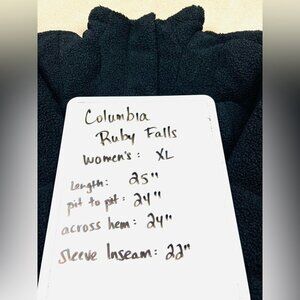 Columbia
Ruby Falls
women's: XL
Length: 25"
pit to pit: 24"
across hem: 24"
Sleeve Inseam: 22"